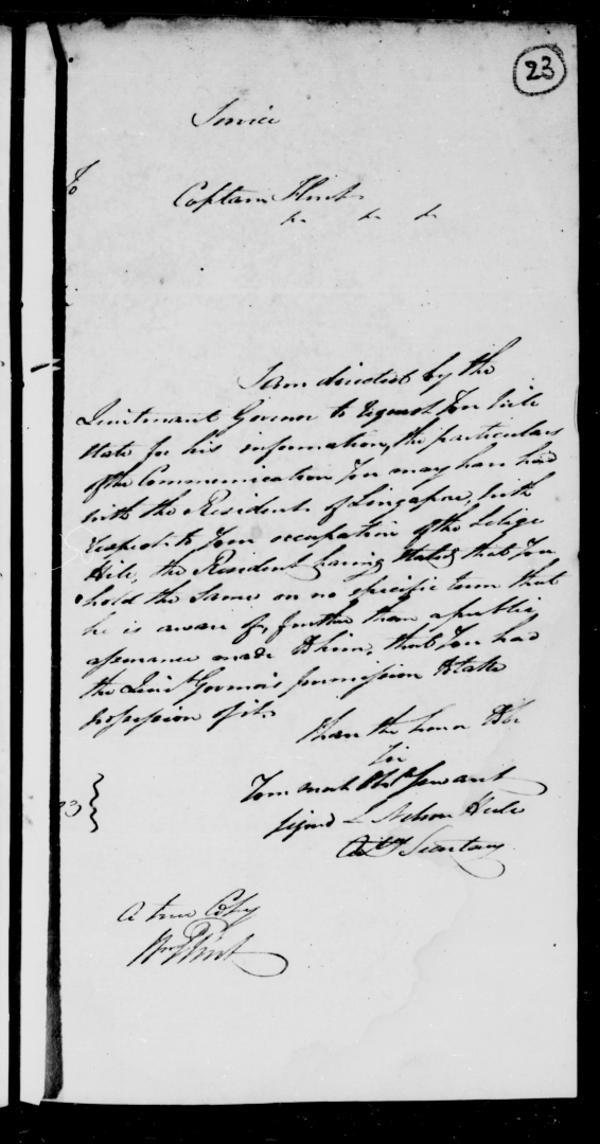 23
Service
To
Captain Flint
&c &c &c
I am directed by the
Lieutenant Governor to request You will
state for his information, the particulars
of the Communication You may have had
with the Resident of Singapore, with
respect to Your occupation of the Selige
Hill, the Resident having stated that You
hold the same on no specific term that
he is aware of, further than a public
assurance made to him, that You had
the Lieut Governor's permission to take
possession of it.
I have the honor to be
Sir
Your most Obt Servant
signed L Nelson Hull
Actg Secretary
23
A true Copy
Wm Flint